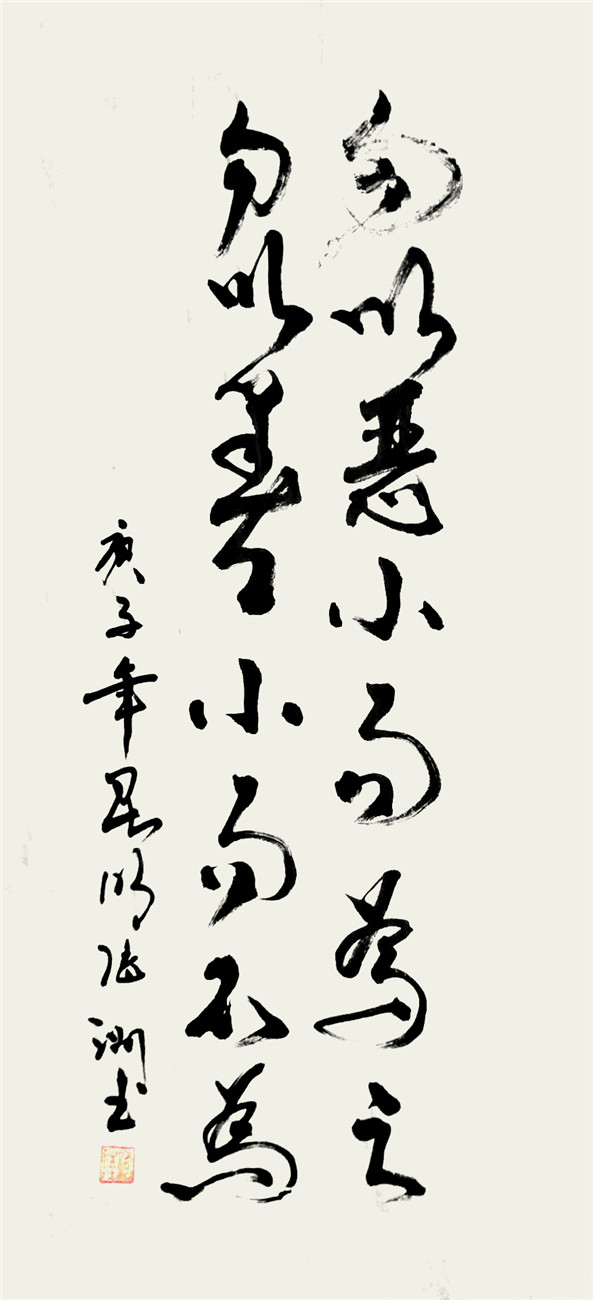 勿以恶小而為之
勿以善小而不為
庚子年昆明張渊书